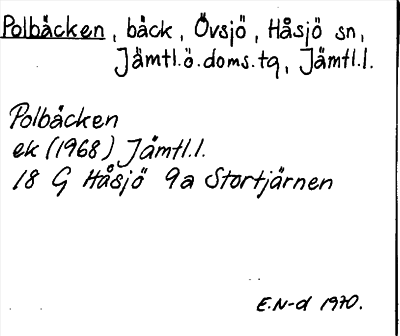 Polbäcken, bäck, Övsjö, Håsjö sn,
Jämtl.ö.doms.tg, Jämtl.l.
Polbäcken
ek (1968) Jämtl.l.
18 G Håsjö 9a Stortjärnen
E.N-d 1970.